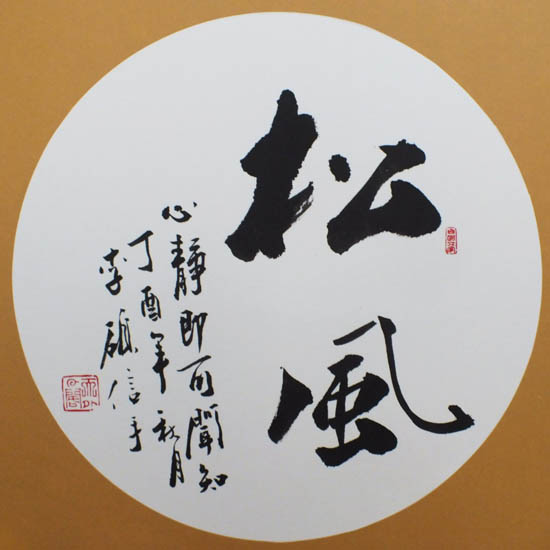 松風
心靜即可聞知
丁酉年秋月
李碩信手